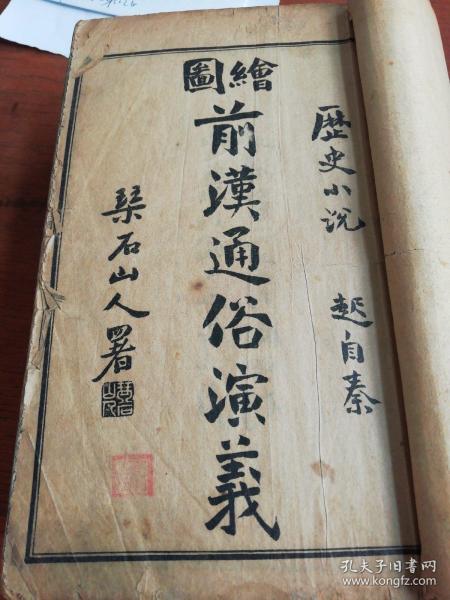 歴史小说　起自秦
繪圖
前漢通俗演義
琹石山人署
孔夫子旧书网
www.kongfz.com